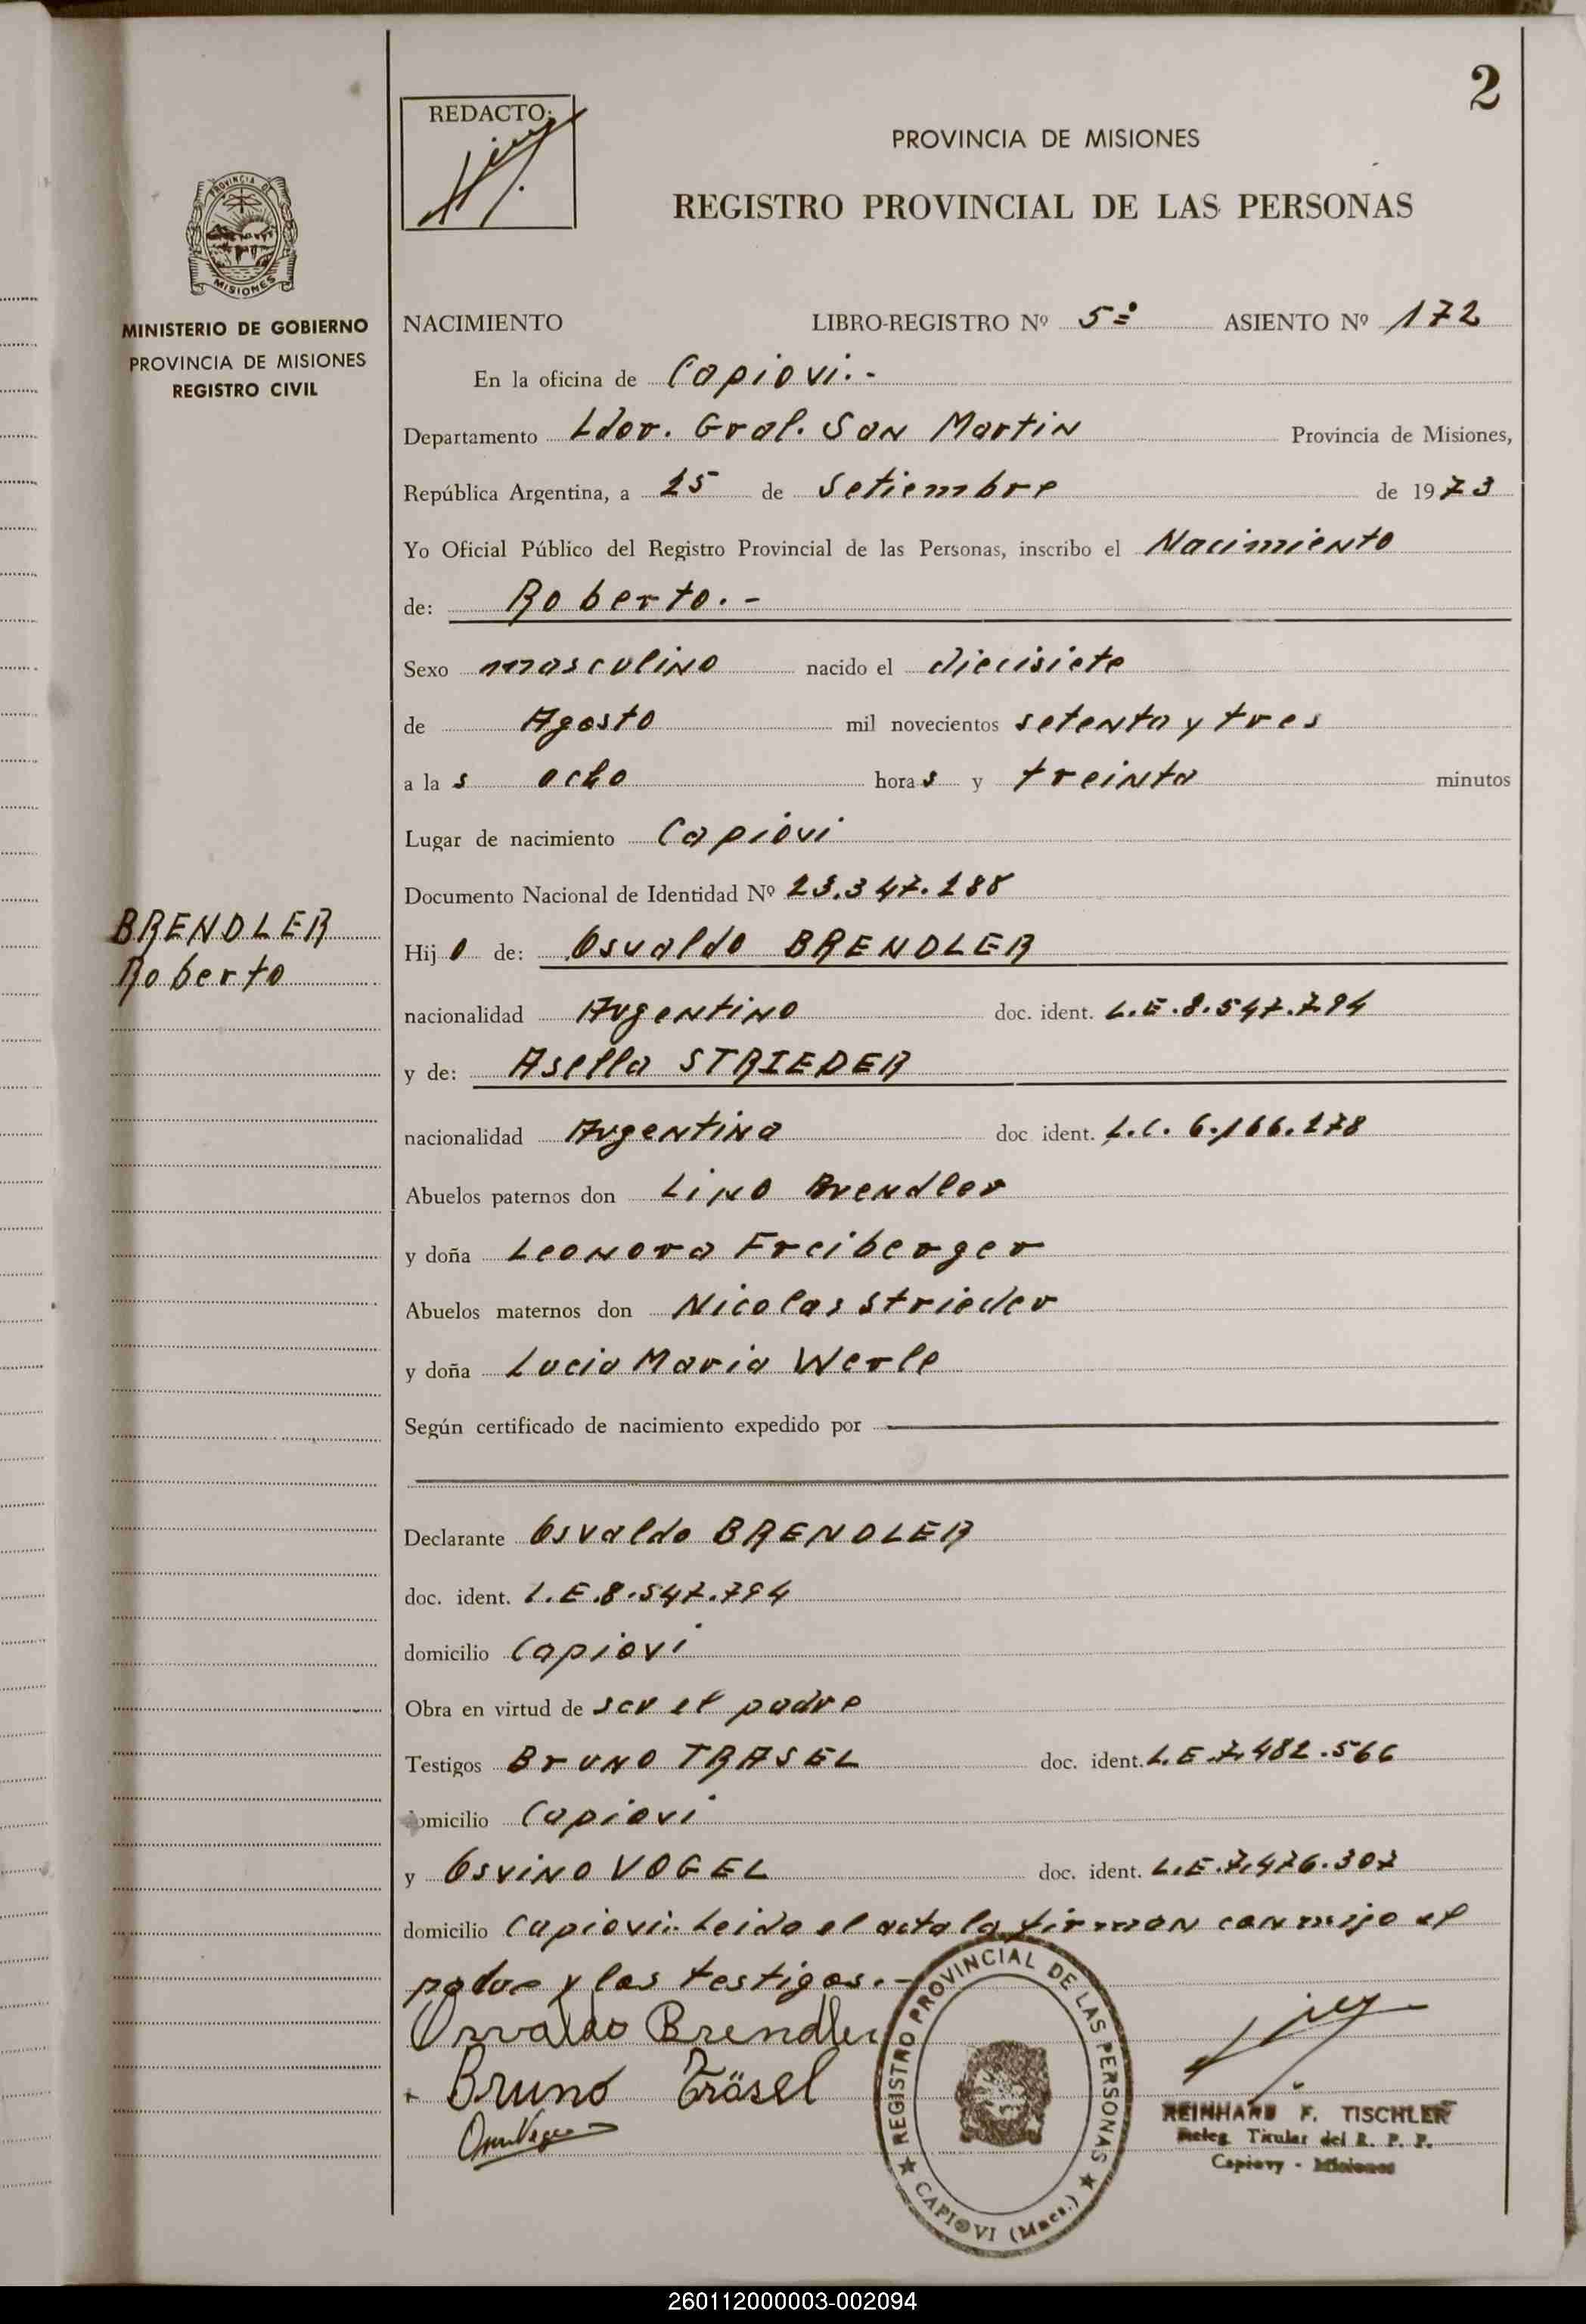 2
REDACTO:
PROVINCIA DE MISIONES
REGISTRO PROVINCIAL DE LAS PERSONAS
PROVINCIA DE
MISIONES
MINISTERIO DE GOBIERNO
PROVINCIA DE MISIONES
REGISTRO CIVIL
NACIMIENTO LIBRO-REGISTRO Nº 5º ASIENTO Nº 172
En la oficina de Capiovi.-
Departamento Ldor. Gral. San Martin Provincia de Misiones,
República Argentina, a 25 de Setiembre de 1973
Yo Oficial Público del Registro Provincial de las Personas, inscribo el Nacimiento
de: Roberto.-
Sexo masculino nacido el diecisiete
de Agosto mil novecientos setenta y tres
a la s ocho hora s y treinta minutos
Lugar de nacimiento Capiovi
Documento Nacional de Identidad Nº 23.347.288
BRENDLER
Roberto
Hij o de: Osvaldo BRENDLER
nacionalidad Argentino doc. ident. L.E.8.547.794
y de: Asella STRIEDER
nacionalidad Argentina doc ident. L.C. 6.166.278
Abuelos paternos don Lino Brendler
y doña Leonora Freiberger
Abuelos maternos don Nicolas Strieder
y doña Lucia Maria Werle
Según certificado de nacimiento expedido por
Declarante Osvaldo BRENDLER
doc. ident. L.E.8.547.794
domicilio Capiovi
Obra en virtud de ser el padre
Testigos Bruno TRASEL doc. ident. L.E.7.482.566
domicilio Capiovi
y Osvino VOGEL doc. ident. L.E.7.476.307
domicilio Capiovi.. Leida el acta la firman conmigo el
padre y los testigos.-
Osvaldo Brendler
Bruno Träsel
REGISTRO PROVINCIAL DE LAS PERSONAS
CAPIOVI (Mnes.)
REINHARD F. TISCHLER
Deleg. Titular del R. P. P.
Capiovy - Misiones
260112000003-002094